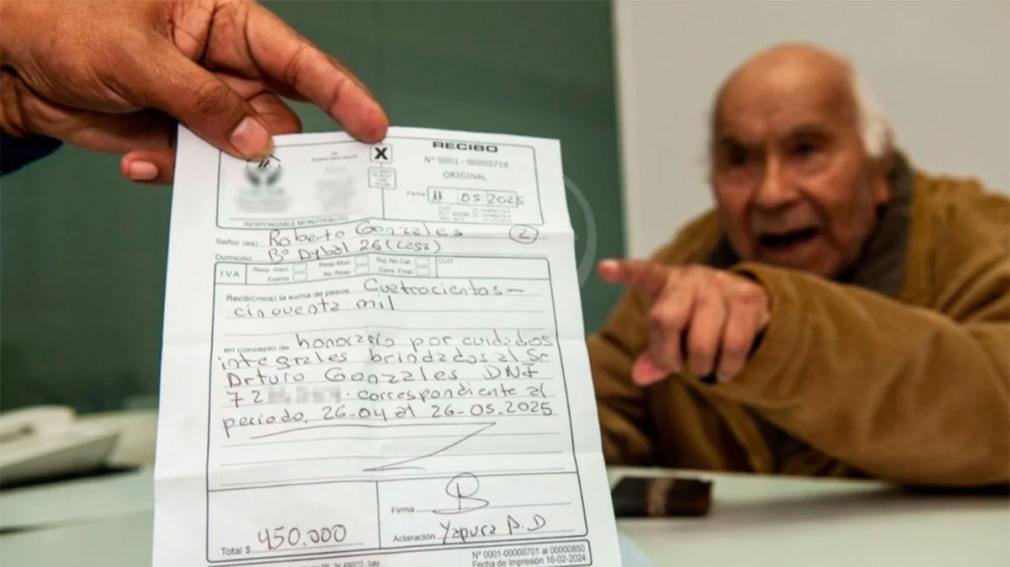 X
RECIBO
Nº 0001 - 00000718
ORIGINAL
Fecha 11 05 2025
RESPONSABLE MONOTRIBUTO
Señor (es) Roberto Gonzales
2
Domicilio Bº Dybal 26 (casa)
IVA
Resp. Inscr.
Resp. Mon.
Sig. No Cat.
CUIT
Exento
No Resp.
Cons. Final
Recibí(mos) la suma de pesos Cuatrocientos—
cincuenta mil
en concepto de honorario por cuidados
integrales brindados al Sr
Arturo Gonzales DNI
72 correspondiente al
periodo, 26-04 al 26-05.2025
Firma B
Total $ 450.000
Aclaración Yapura D.D
Nº 0001-00000701 al 00000850
Fecha de Impresión 16-02-2024